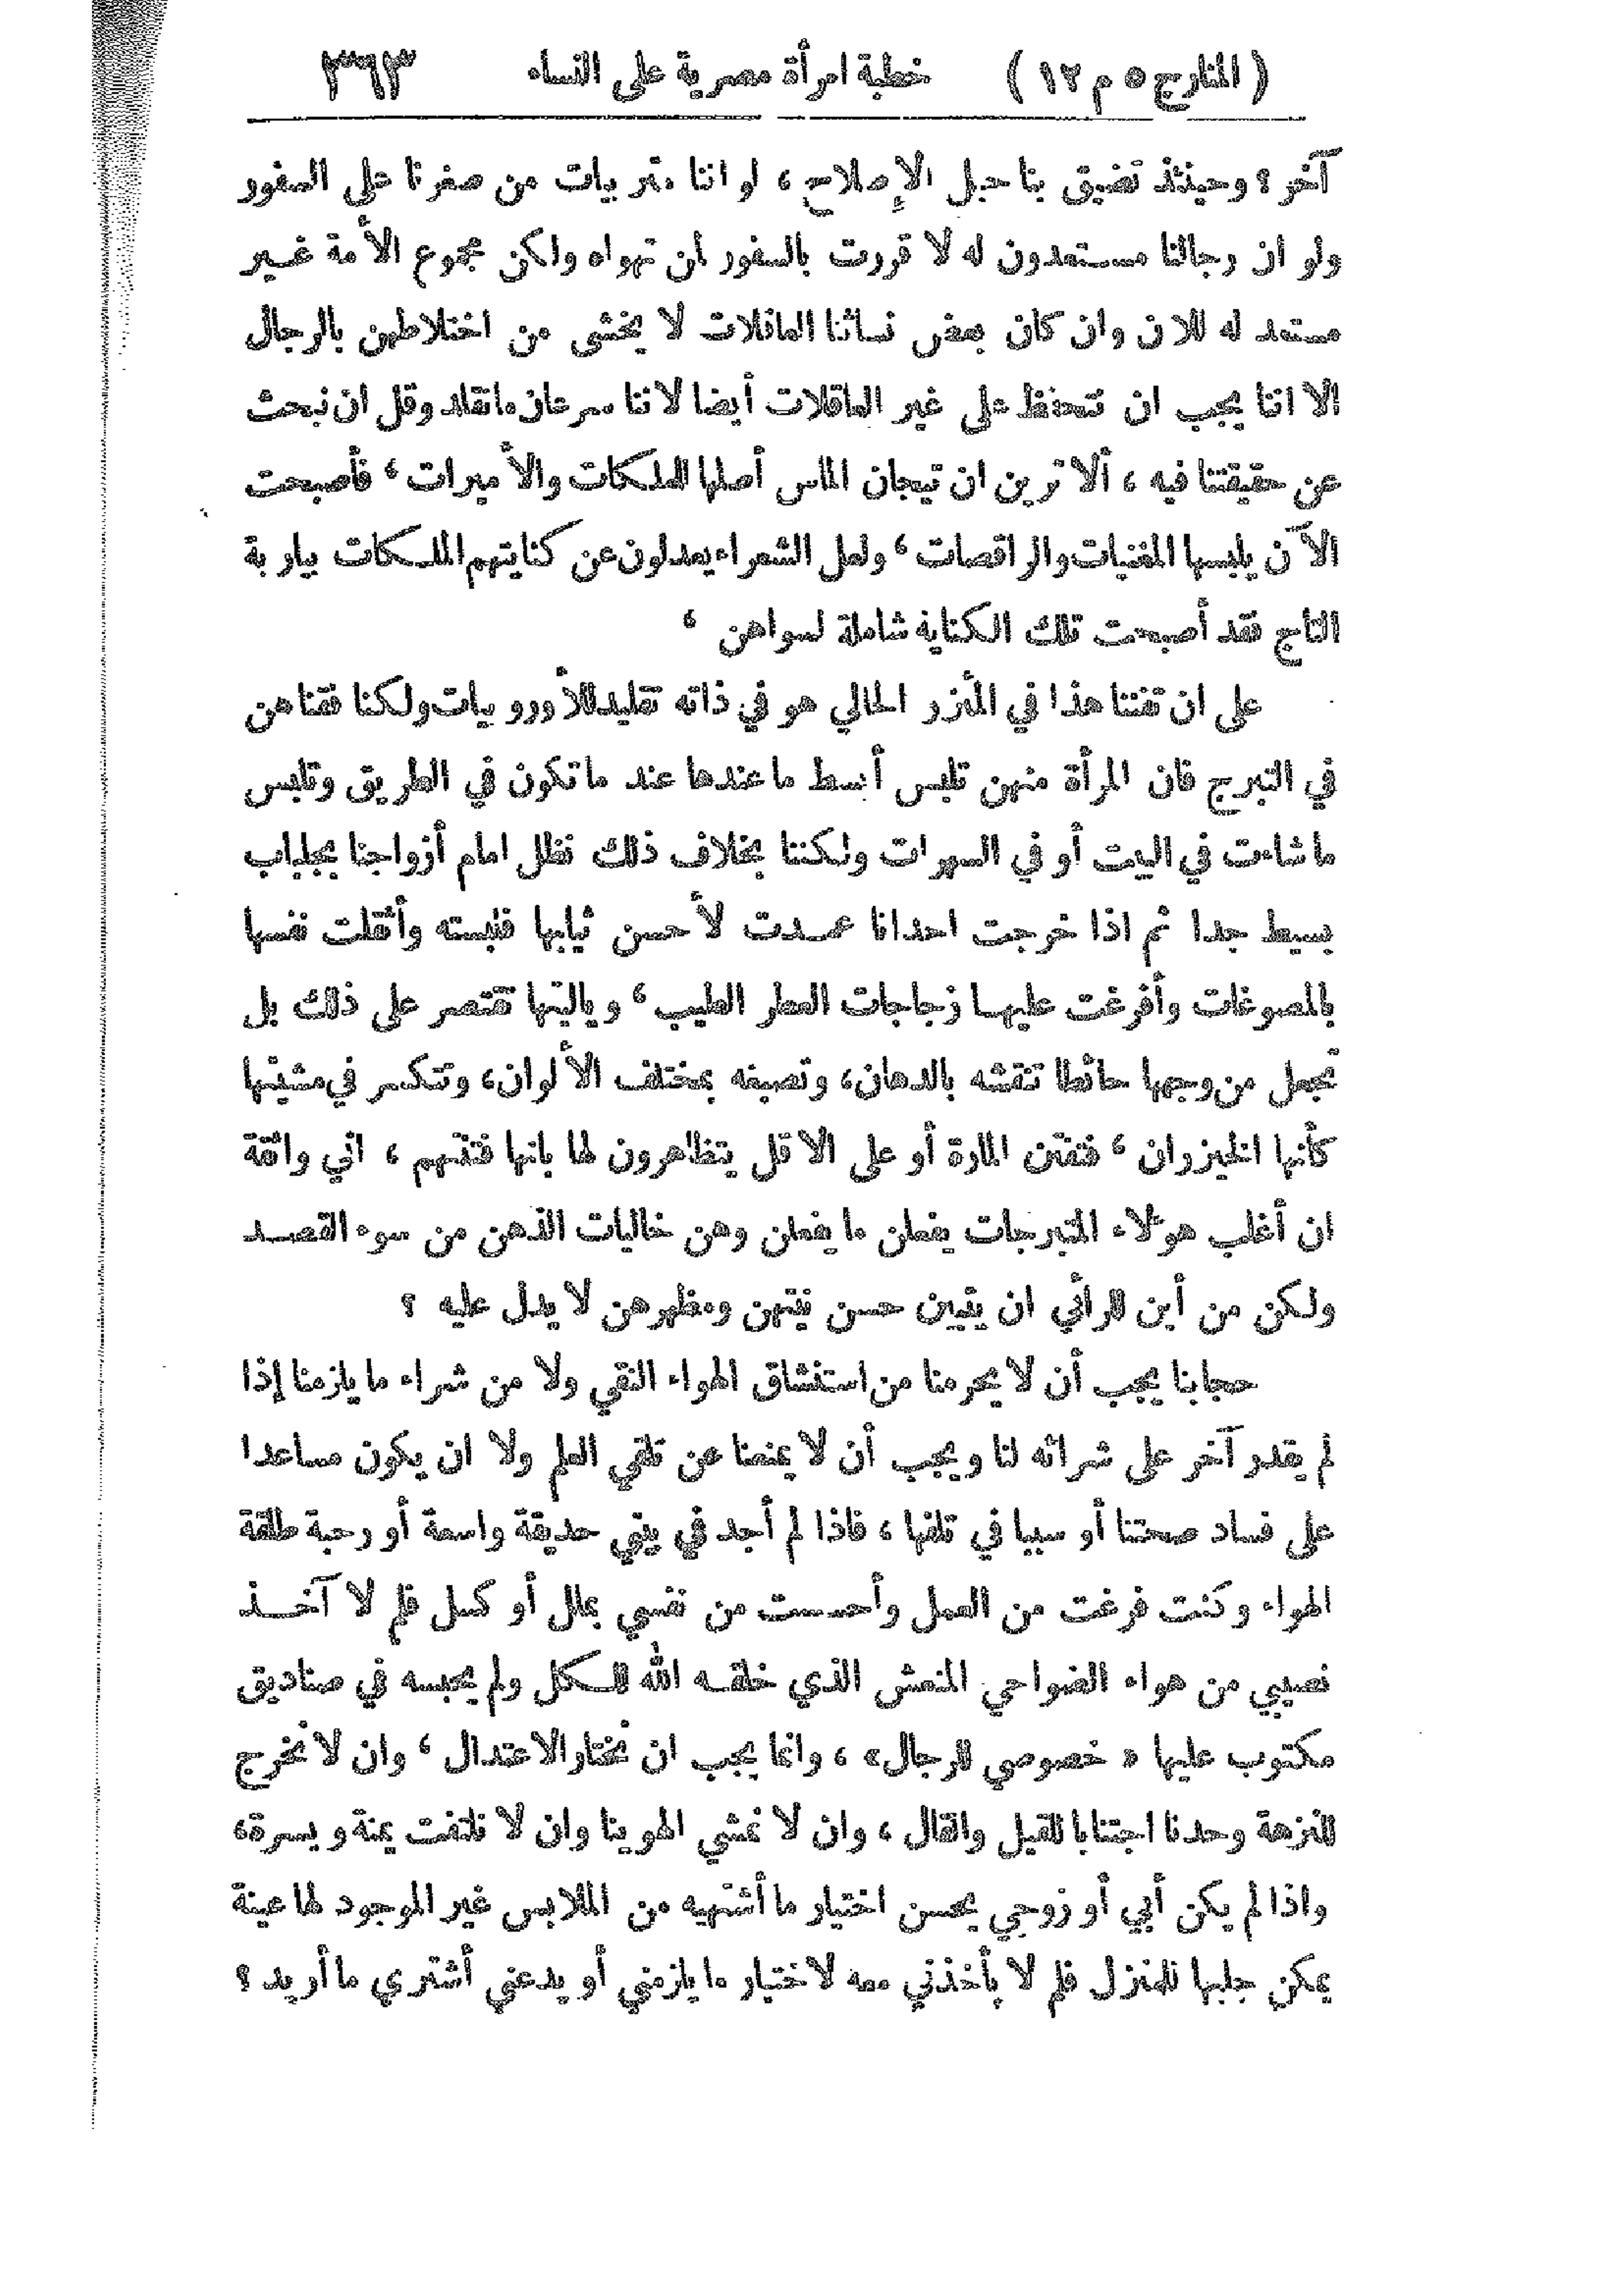 ( المنار ج ٥ م ١٢ ) خطبة امرأة مصرية على النساء ٣٦٣
آخر ؟ وحينئذ تضيق بنا حبل الإصلاح ، لو اننا متربيات من صغرنا على السفور
ولو ان رجالنا مستعدون له لا قررت بالسفور لمن تهواه ولكن مجموع الأمة غير
مستعد له للآن وان كان بعض نسائنا العاقلات لا يخشى من اختلاطهن بالرجال
الا اننا يجب ان نتحفظ على غير العاقلات أيضا لاننا سرعان ما نقلد وقل ان نبحث
عن حقيقتنا فيه ، ألا ترين ان تيجان الماس أصلها للملكات والأميرات ، فأصبحت
الآن يلبسها المغنيات والراقصات ، ولعل الشعراء يعدلون عن كنايتهم الملكات بيا ربة
التاج فقد أصبحت تلك الكناية شاملة لسواهن ،
على ان تفننا هذا في المئزر الحالي هو في ذاته تقليد للأوروبيات ولكنا فقناهن
في التبرج فان المرأة منهن تلبس أبسط ما عندها عند ما تكون في الطريق وتلبس
ما شاءت في البيت أو في السهرات ولكننا بخلاف ذلك نظل امام أزواجنا بجلباب
بسيط جدا ثم اذا خرجت احدانا عمدت لأحسن ثيابها فلبسته وأثقلت نفسها
بالمصوغات وأفرغت عليها زجاجات العطر الطيب ، وياليتها تقتصر على ذلك بل
تجعل من وجهها حائطا تنقشه بالدهان، وتصبغه بمختلف الألوان، وتتكسر في مشيتها
كأنها الخيزران ، فتفتن المارة أو على الاقل يتظاهرون لها بانها فتنتهم ، اني واثقة
ان أغلب هؤلاء المتبرجات يفعلن ما يفعلن وهن خاليات الذهن من سوء القصد
ولكن من أين للرائي ان يتبين حسن نيتهن ومظهرهن لا يدل عليه ؟
حجابنا يجب أن لا يحرمنا من استنشاق الهواء النقي ولا من شراء ما يلزمنا إذا
لم يقدر آخر على شرائه لنا ويجب أن لا يمنعنا عن تلقي العلم ولا ان يكون مساعدا
على فساد صحتنا أو سببا في تلفها ، فاذا لم أجد في بيتي حديقة واسعة أو رحبة طلقة
الهواء وكنت فرغت من العمل وأحسست من نفسي بملل أو كسل فلم لا آخذ
نصيبي من هواء الضواحي المنعش الذي خلقه الله للكل ولم يحبسه في صناديق
مكتوب عليها « خصوصي للرجال» ، وانما يجب ان نختار الاعتدال ، وان لا نخرج
للنزهة وحدنا اجتنابا للقيل والقال ، وان لا نمشي الهوينا وان لا نلتفت يمنة ويسرة،
واذا لم يكن أبي أو زوجي يحسن اختيار ما أشتهيه من الملابس غير الموجود لها عينة
يمكن جلبها للمنزل فلم لا يأخذني معه لاختيار ما يلزمني أو يدعني أشتري ما أريد ؟